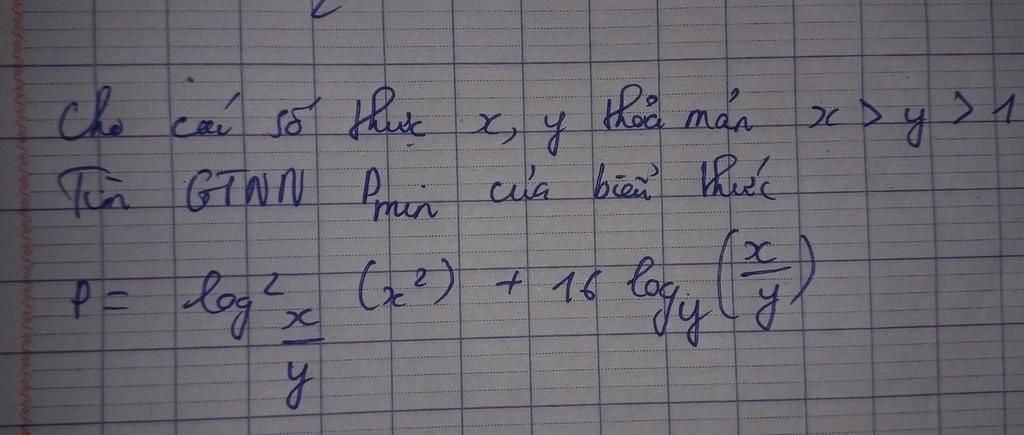 Cho các số thực x, y thoả mãn x > y > 1
Tìm GTNN Pmin của biểu thức
P = log² x/y (x²) + 16 log y (x/y)